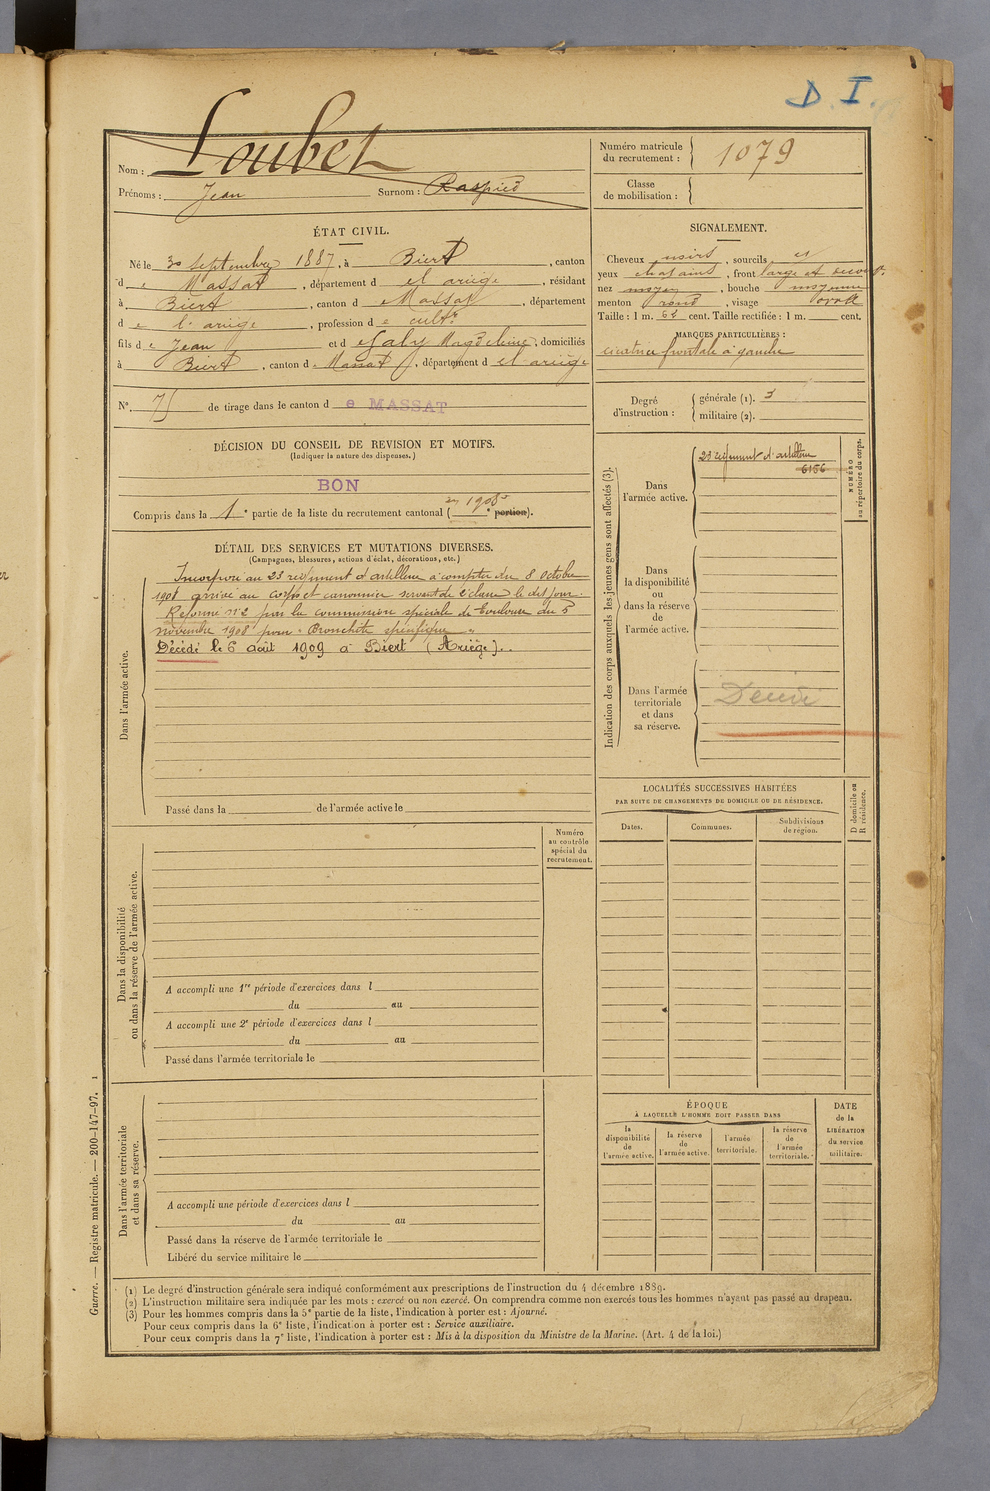 D. I.
Nom : Loubet
Prénoms : Jean Surnom : Raspied
Numéro matricule du recrutement : 1079
Classe de mobilisation :
ÉTAT CIVIL.
Né le 30 septembre 1887, à Biert, canton
d e Massat, département d e l'ariège, résidant
à Biert, canton d e Massat, département
d e l'ariège, profession d e cult.r
fils d e Jean et d e Galy Magdeleine, domiciliés
à Biert, canton d e Massat, département d e l'ariège
N° 75 de tirage dans le canton d e MASSAT
DÉCISION DU CONSEIL DE REVISION ET MOTIFS.
(Indiquer la nature des dispenses.)
BON
Compris dans la 1e partie de la liste du recrutement cantonal (en 1908 e portion).
SIGNALEMENT.
Cheveux noirs, sourcils et
yeux chatains, front large et découvt.
nez moyen, bouche moyenne
menton rond, visage ovale
Taille : 1 m. 62 cent. Taille rectifiée : 1 m. cent.
MARQUES PARTICULIÈRES :
cicatrice frontale à gauche
Degré d'instruction : générale (1). 3
militaire (2).
DÉTAIL DES SERVICES ET MUTATIONS DIVERSES.
(Campagnes, blessures, actions d'éclat, décorations, etc.)
Dans l'armée active.
Incorporé au 23 régiment d'artillerie à compter du 8 octobre
1908 arrivé au corps et canonnier servant de 2e classe le dit jour.
Réformé n°2 par la commission spéciale de Toulouse du 5
novembre 1908 pour "Bronchite spécifique"
Décédé le 6 août 1909 à Biert (Ariège).
Passé dans la de l'armée active le
Indication des corps auxquels les jeunes gens sont affectés (3).
NUMÉRO au répertoire du corps.
Dans l'armée active.
23 régiment d'artillerie
6156
Dans la disponibilité ou dans la réserve de l'armée active.
Dans l'armée territoriale et dans sa réserve.
LOCALITÉS SUCCESSIVES HABITÉES
PAR SUITE DE CHANGEMENTS DE DOMICILE OU DE RÉSIDENCE.
D domicile ou R résidence.
Dates. Communes. Subdivisions de région.
Numéro au contrôle spécial du recrutement.
Dans la disponibilité ou dans la réserve de l'armée active.
A accompli une 1re période d'exercices dans l
du au
A accompli une 2e période d'exercices dans l
du au
Passé dans l'armée territoriale le
Dans l'armée territoriale et dans sa réserve.
A accompli une période d'exercices dans l
du au
Passé dans la réserve de l'armée territoriale le
Libéré du service militaire le
ÉPOQUE
À LAQUELLE L'HOMME DOIT PASSER DANS
la disponibilité de l'armée active.
la réserve de l'armée active.
l'armée territoriale.
la réserve de l'armée territoriale.
DATE de la LIBÉRATION du service militaire.
Guerre. — Registre matricule. — 200-147-97. 1
(1) Le degré d'instruction générale sera indiqué conformément aux prescriptions de l'instruction du 4 décembre 1889.
(2) L'instruction militaire sera indiquée par les mots : exercé ou non exercé. On comprendra comme non exercés tous les hommes n'ayant pas passé au drapeau.
(3) Pour les hommes compris dans la 5e partie de la liste, l'indication à porter est : Ajourné.
Pour ceux compris dans la 6e liste, l'indication à porter est : Service auxiliaire.
Pour ceux compris dans la 7e liste, l'indication à porter est : Mis à la disposition du Ministre de la Marine. (Art. 4 de la loi.)